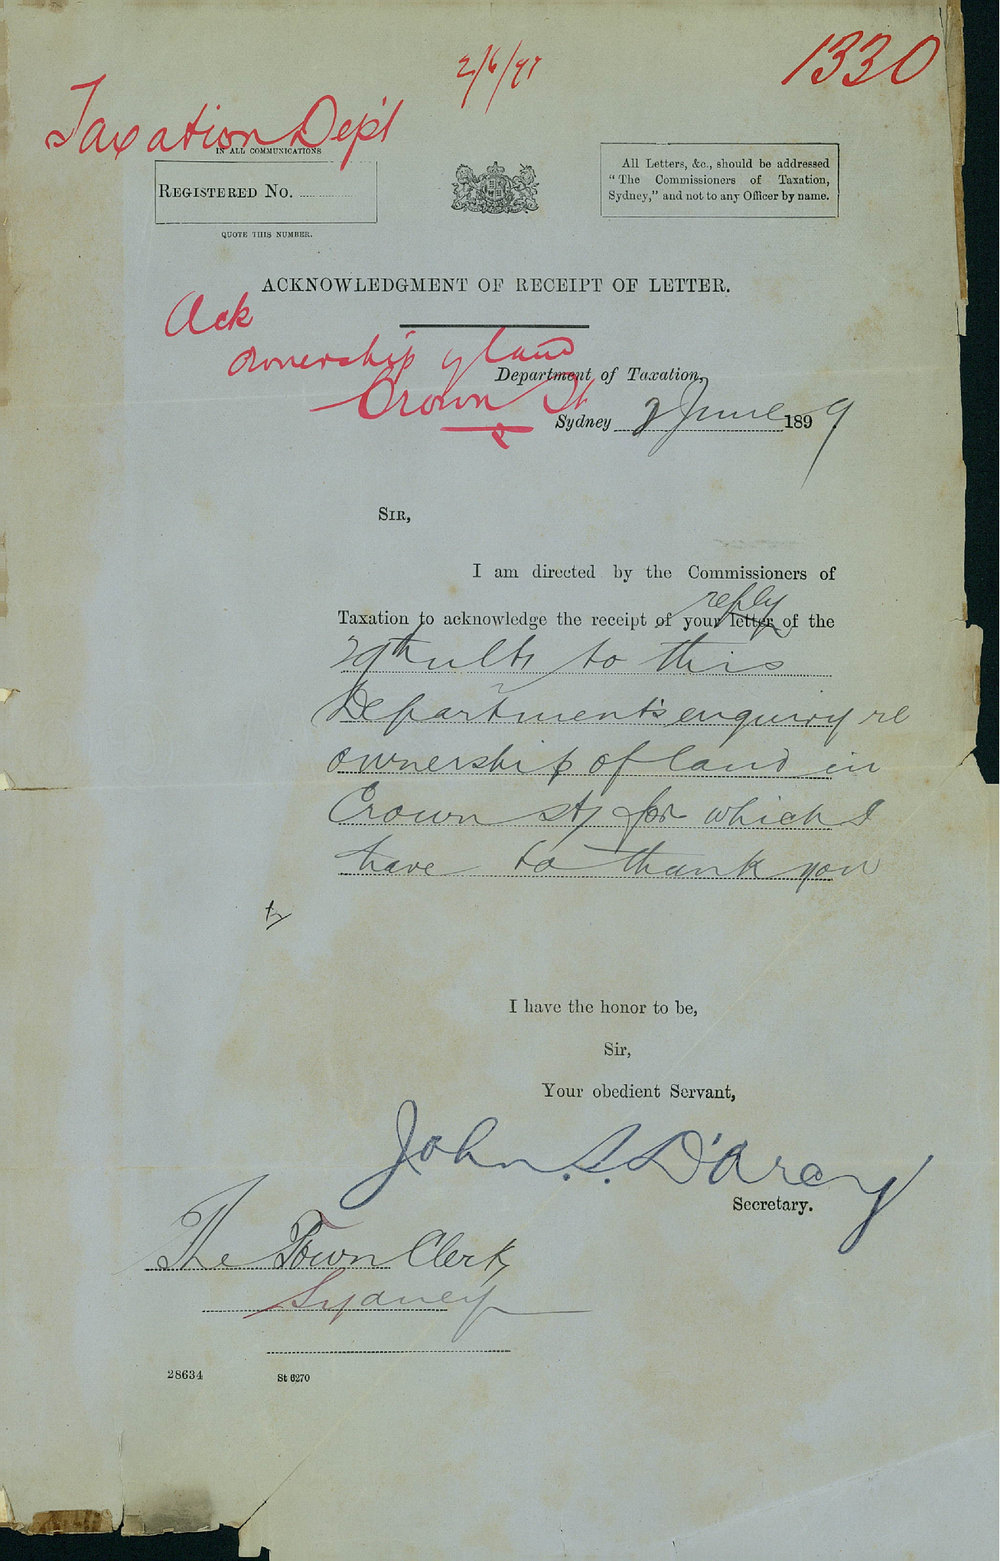 1330
2/6/97
Taxation Dep't
IN ALL COMMUNICATIONS
REGISTERED NO. ..................
QUOTE THIS NUMBER.
All Letters, &c., should be addressed
"The Commissioners of Taxation,
Sydney," and not to any Officer by name.
ACKNOWLEDGMENT OF RECEIPT OF LETTER.
Ack
ownership of land
Crown St
Department of Taxation,
Sydney 2 June 1899
SIR,
I am directed by the Commissioners of
reply
Taxation to acknowledge the receipt of your letter of the
29th ulto to this
Department's enquiry re
ownership of land in
Crown St, for which I
have to thank you
I have the honor to be,
Sir,
Your obedient Servant,
John S. D'Arcy
Secretary.
The Town Clerk,
Sydney
28634
St 6270